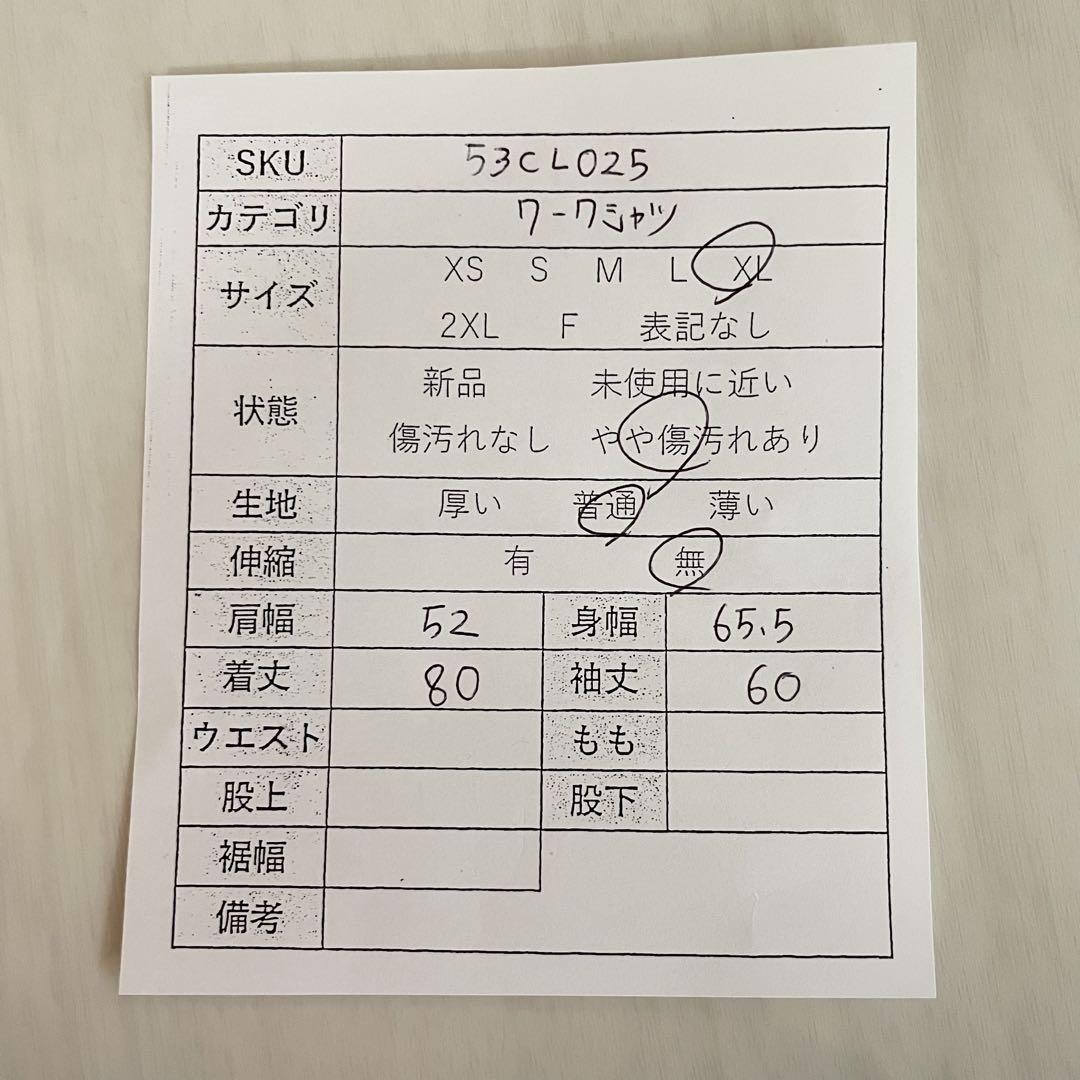 SKU 53CL025
カテゴリ ワークシャツ
サイズ XS S M L XL
2XL F 表記なし
状態 新品 未使用に近い
傷汚れなし やや傷汚れあり
生地 厚い 普通 薄い
伸縮 有 無
肩幅 52 身幅 65.5
着丈 80 袖丈 60
ウエスト もも
股上 股下
裾幅
備考